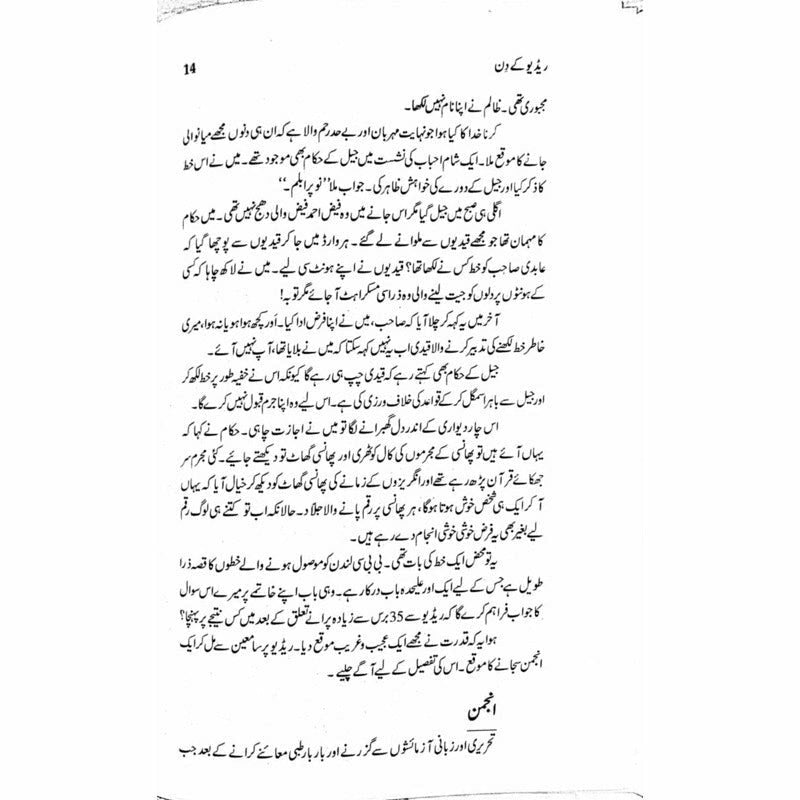 ریڈیو کے دِن 14
مجبوری تھی۔ ظالم نے اپنا نام نہیں لکھا۔
کرنا خدا کا کیا ہوا جو نہایت مہربان اور بے حد رحم والا ہے کہ ان ہی دنوں مجھے میانوالی
جانے کا موقع ملا۔ ایک شام احباب کی نشست میں جیل کے حکام بھی موجود تھے۔ میں نے اس خط
کا ذکر کیا اور جیل کے دورے کی خواہش ظاہر کی۔ جواب ملا ”نو پرابلم۔“
اگلی ہی صبح میں جیل گیا مگر اس جانے میں وہ فیض احمد فیض والی دھج نہیں تھی۔ میں حکام
کا مہمان تھا جو مجھے قیدیوں سے ملوانے لے گئے۔ ہر وارڈ میں جا کر قیدیوں سے پوچھا گیا کہ
عابدی صاحب کو خط کس نے لکھا تھا؟ قیدیوں نے اپنے ہونٹ سی لیے۔ میں نے لاکھ چاہا کہ کسی
کے ہونٹوں پر دلوں کو جیت لینے والی وہ ذرا سی مسکراہٹ آ جائے مگر توبہ!
آخر میں یہ کہہ کر چلا آیا کہ صاحب، میں نے اپنا فرض ادا کیا۔ اَور کچھ ہوا ہو یا نہ ہوا، میری
خاطر خط لکھنے کی تدبیر کرنے والا قیدی اب یہ نہیں کہہ سکتا کہ میں نے بلایا تھا، آپ نہیں آئے۔
جیل کے حکام بھی کہتے رہے کہ قیدی چپ ہی رہے گا کیونکہ اس نے خفیہ طور پر خط لکھ کر
اور جیل سے باہر اسمگل کر کے قواعد کی خلاف ورزی کی ہے۔ اس لیے وہ اپنا جرم قبول نہیں کرے گا۔
اس چار دیواری کے اندر دل گھبرانے لگا تو میں نے اجازت چاہی۔ حکام نے کہا کہ
یہاں آئے ہیں تو پھانسی کے مجرموں کی کال کوٹھری اور پھانسی گھاٹ تو دیکھتے جائیے۔ کئی مجرم سر
جھکائے قرآن پڑھ رہے تھے اور انگریزوں کے زمانے کی پھانسی گھاٹ کو دیکھ کر خیال آیا کہ یہاں
آ کر ایک ہی شخص خوش ہوتا ہوگا، ہر پھانسی پر رقم پانے والا جلاد۔ حالانکہ اب تو کتنے ہی لوگ رقم
لیے بغیر بھی یہ فرض خوشی خوشی انجام دے رہے ہیں۔
یہ تو محض ایک خط کی بات تھی۔ بی بی سی لندن کو موصول ہونے والے خطوں کا قصہ ذرا
طویل ہے جس کے لیے ایک اور علیحدہ باب درکار ہے۔ وہی باب اپنے خاتمے پر میرے اس سوال
کا جواب فراہم کرے گا کہ ریڈیو سے 35 برس سے زیادہ پرانے تعلق کے بعد میں کس نتیجے پر پہنچا؟
ہوا یہ کہ قدرت نے مجھے ایک عجیب و غریب موقع دیا۔ ریڈیو پر سامعین سے مل کر ایک
انجمن سجانے کا موقع۔ اس کی تفصیل کے لیے آگے چلیے۔
انجمن
تحریری اور زبانی آزمائشوں سے گزرنے اور بار بار طبی معائنے کرانے کے بعد جب